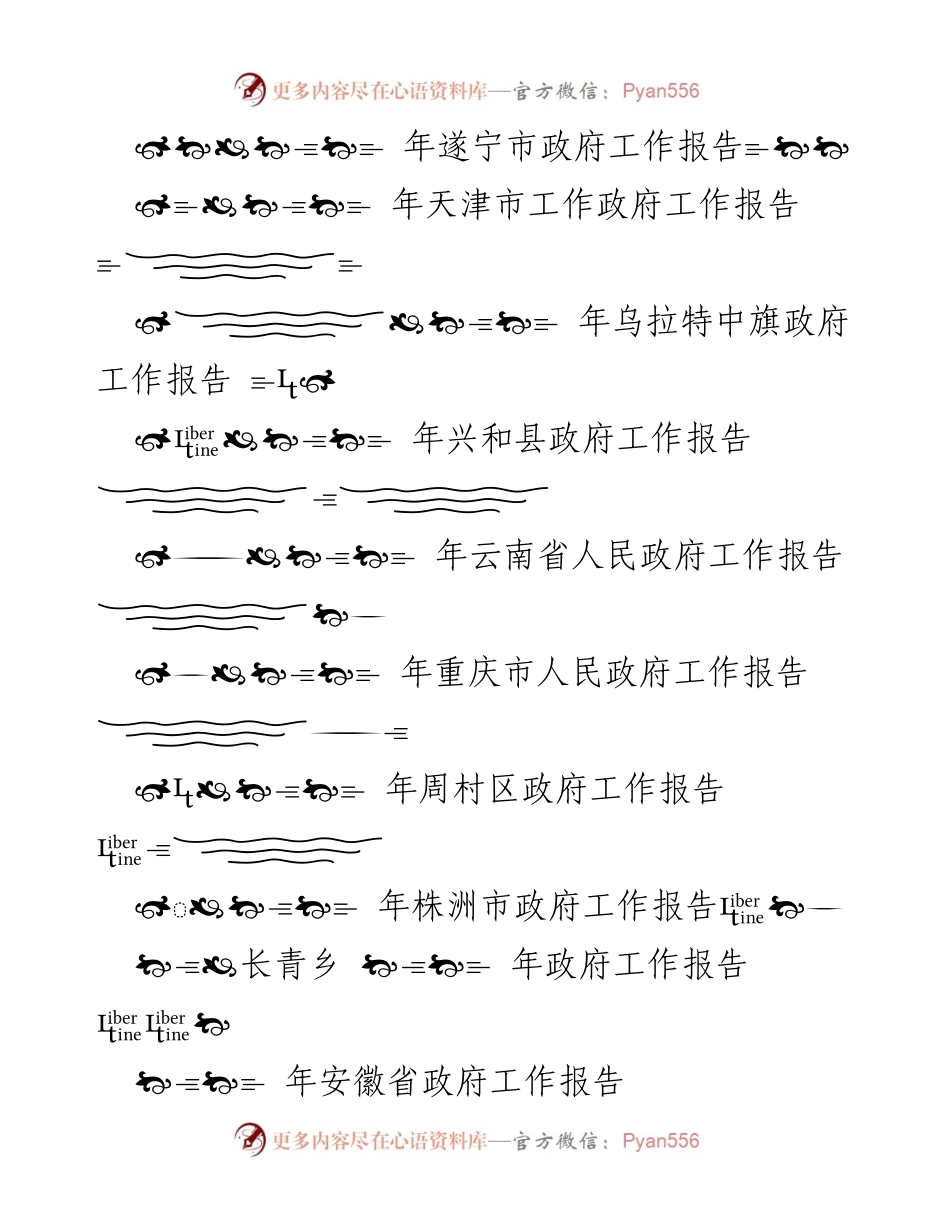 更多内容尽在心语资料库—官方微信：Pyan556
年遂宁市政府工作报告
年天津市工作政府工作报告
年乌拉特中旗政府
工作报告 Lt
Libertine 年兴和县政府工作报告
年云南省人民政府工作报告
年重庆市人民政府工作报告
Lt 年周村区政府工作报告
Libertine
年株洲市政府工作报告 Libertine
长青乡 年政府工作报告
Libertine Libertine
年安徽省政府工作报告
更多内容尽在心语资料库—官方微信：Pyan556